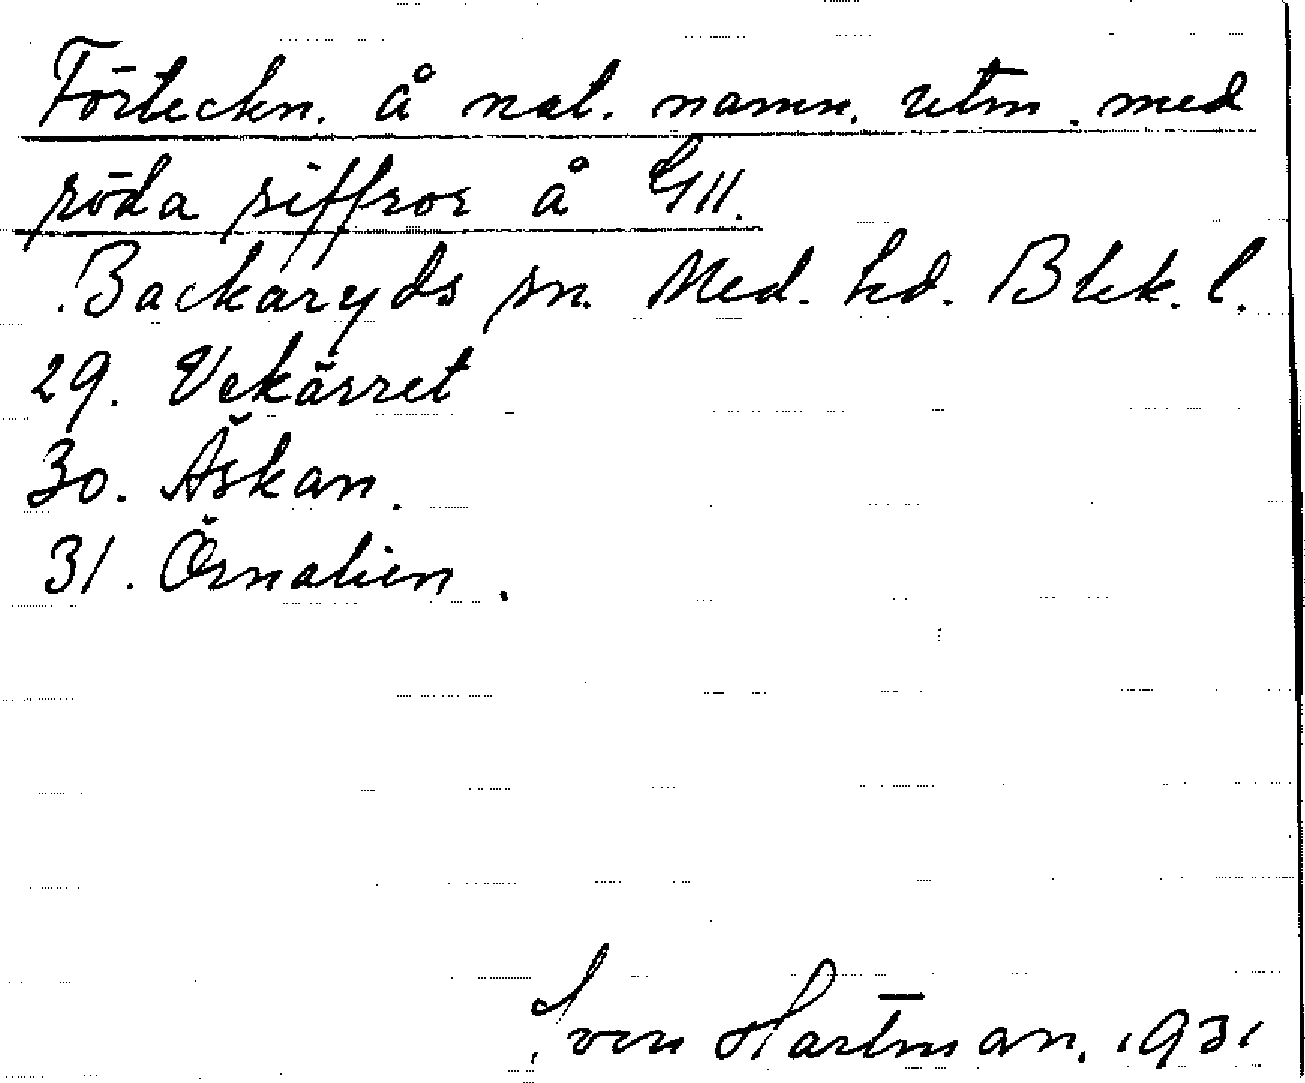 Förteckn. å nat. namn. utm. med
röda siffror å GII.
Backaryds sn. Med. hd. Blek. l.
29. Vekärret
30. Äskan.
31. Örnalien.
Sven Hartman. 1931